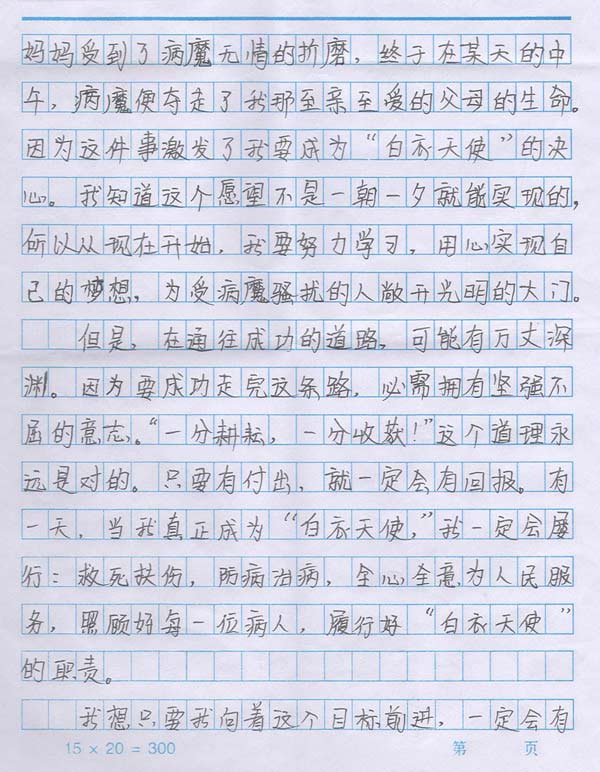 妈妈受到了病魔无情的折磨，终于在某天的中
午，病魔便夺走了我那至亲至爱的父母的生命。
因为这件事激发了我要成为“白衣天使”的决
心。我知道这个愿望不是一朝一夕就能实现的，
所以从现在开始，我要努力学习，用心实现自
己的梦想，为受病魔骚扰的人敞开光明的大门。
但是，在通往成功的道路，可能有万丈深
渊。因为要成功走完这条路，必需拥有坚强不
屈的意志。“一分耕耘，一分收获！”这个道理永
远是对的。只要有付出，就一定会有回报。有
一天，当我真正成为“白衣天使，”我一定会履
行：救死扶伤，防病治病，全心全意为人民服
务，照顾好每一位病人，履行好“白衣天使”
的职责。
我想只要我向着这个目标前进，一定会有
15 × 20 = 300 第 页